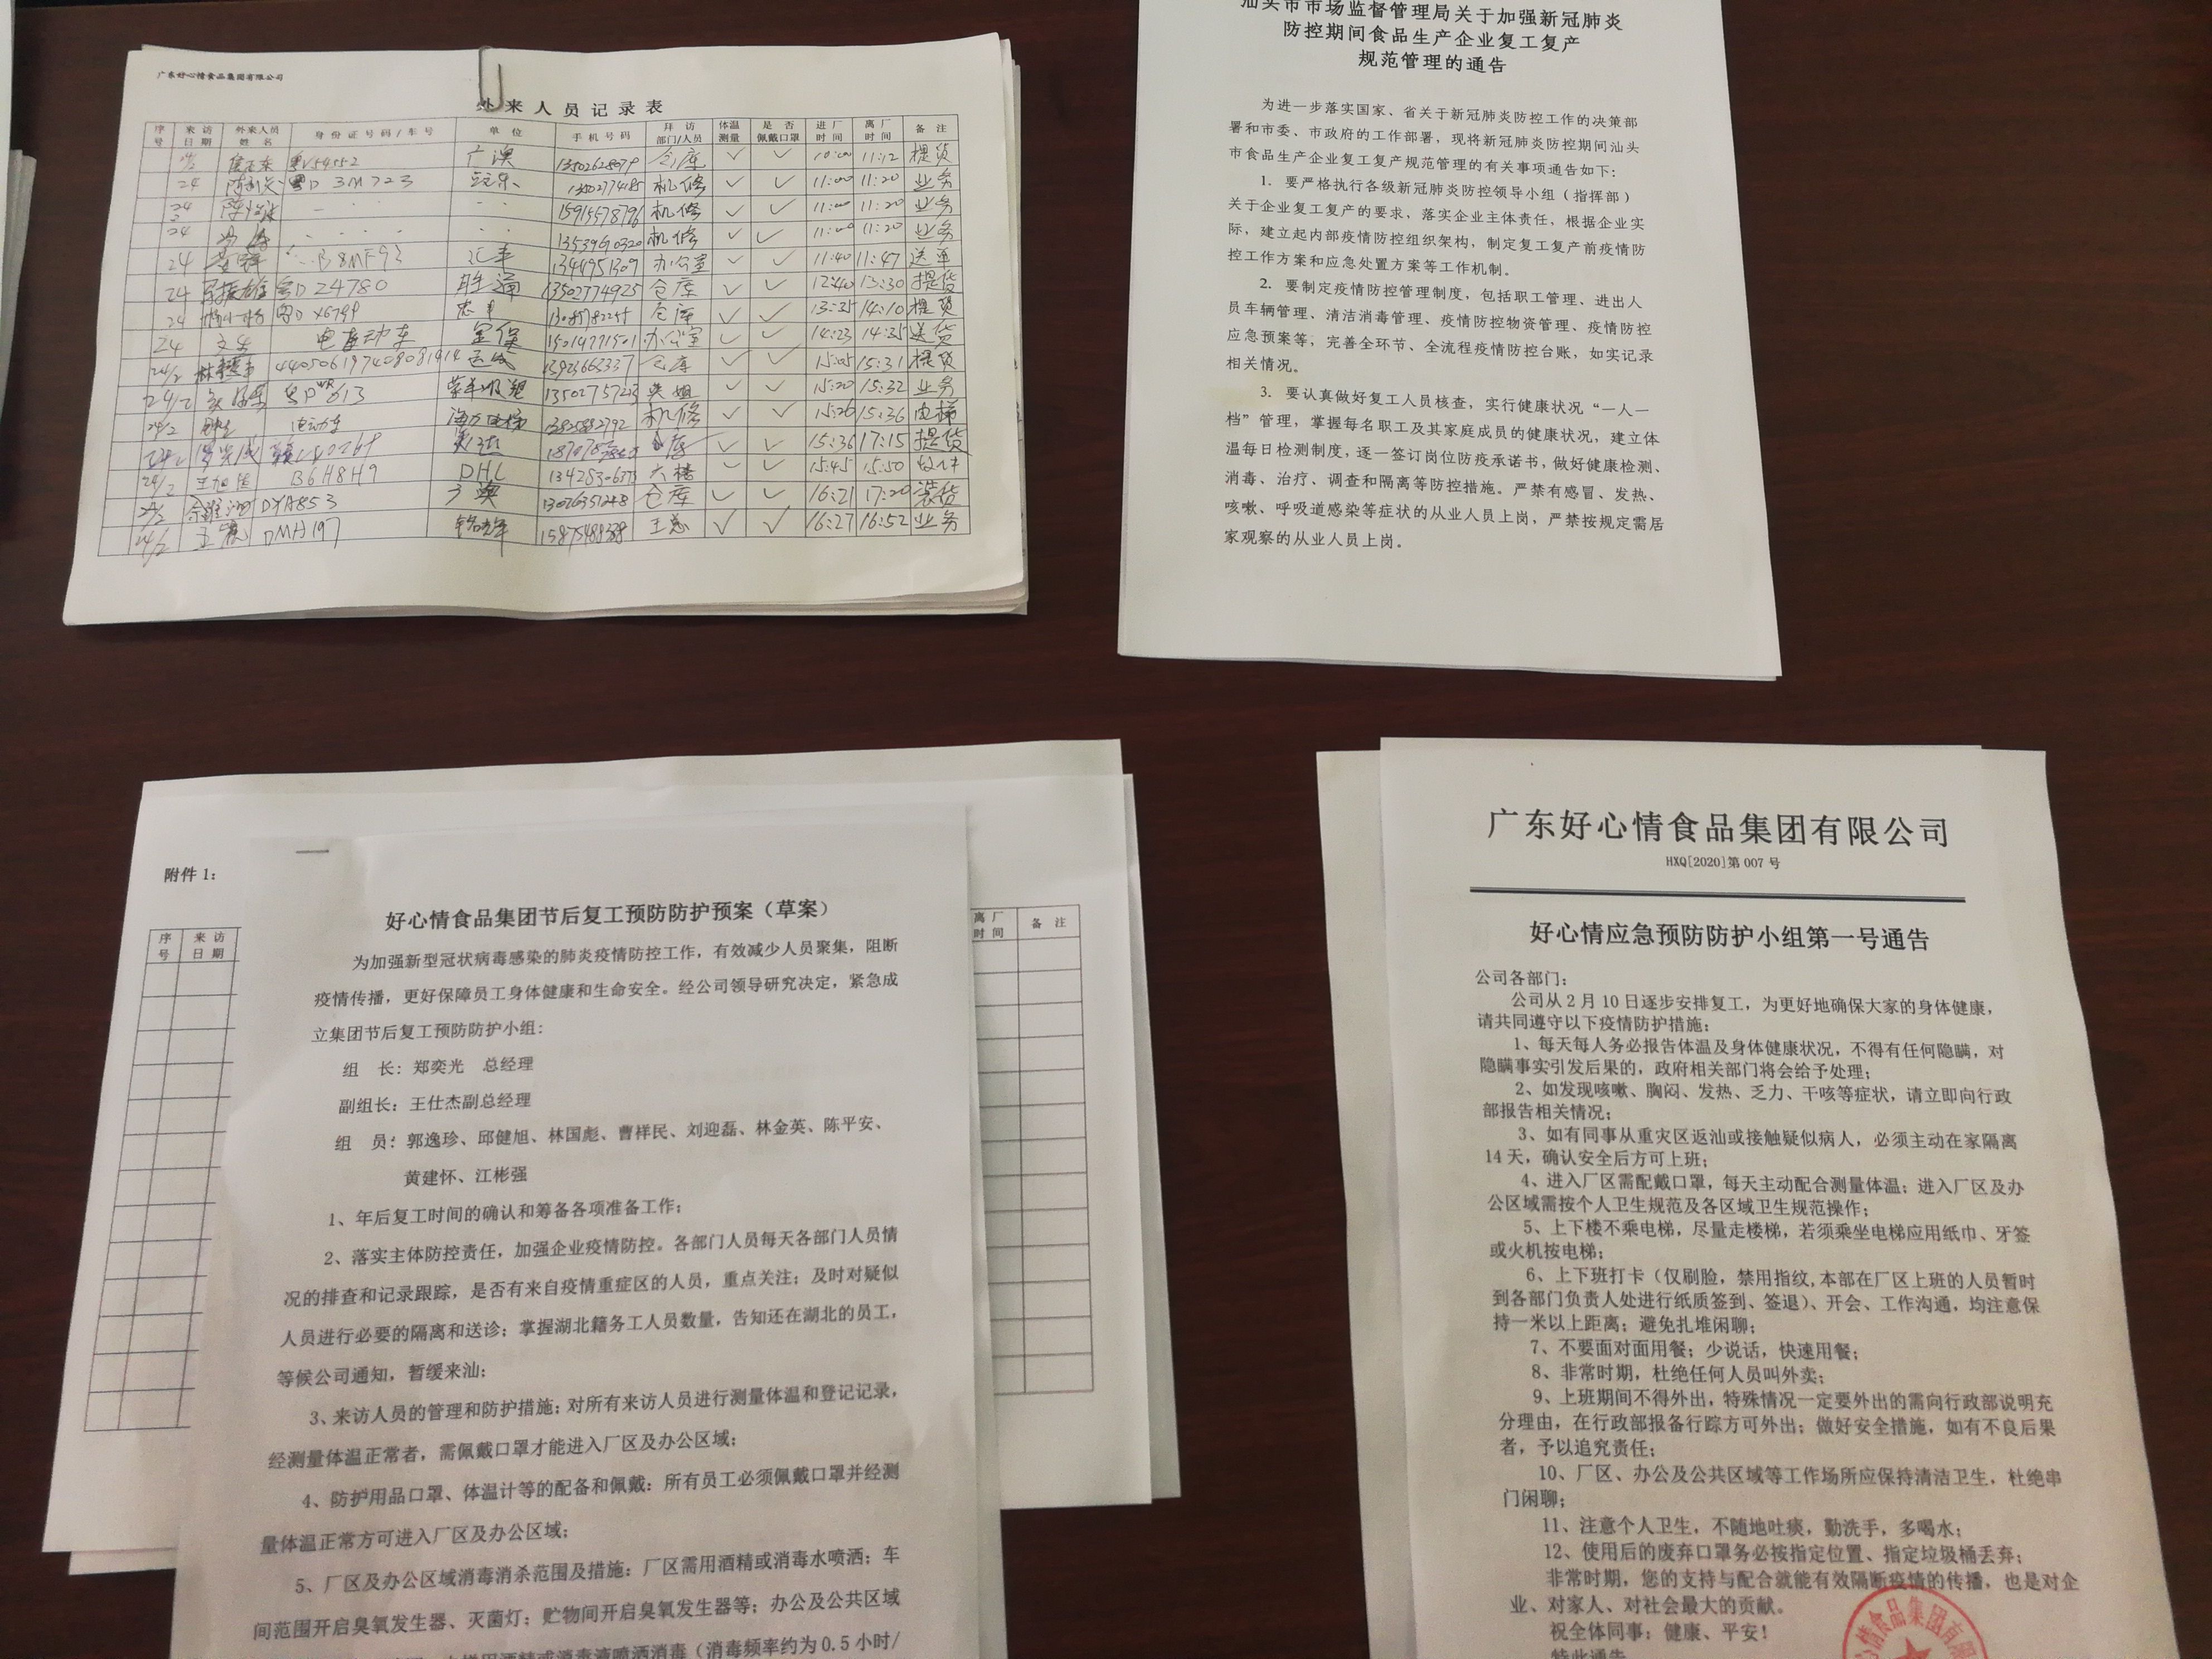 广东好心情食品集团有限公司
外来人员记录表
序号 来访日期 外来人员姓名 身份证号码/车号 单位 手机号码 拜访部门/人员 体温测量 是否佩戴口罩 进厂时间 离厂时间 备注
仓库 ✓ ✓ 11:12 提货
24 3M723 机修 ✓ ✓ 11:00 11:20 业务
24 15915578796 机修 ✓ ✓ 11:00 11:20 业务
24 机修 ✓ ✓ 11:00 11:20 业务
24 B8MF93 汇丰 办公室 ✓ ✓ 11:40 11:47 送单
24 D24780 胜通 13502774925 仓库 ✓ ✓ 12:40 13:30 提货
24 仓库 ✓ ✓ 13:35 14:10 提货
24 电动车 金保 15014771501 办公室 ✓ ✓ 14:23 14:35 送货
24/2 仓库 ✓ ✓ 15:05 15:31 提货
24/2 ✓ ✓ 15:20 15:32 业务
24/2 电动车 机修 ✓ ✓ 15:26 15:36 电梯
✓ ✓ 15:36 17:15 提货
24/2 B6H8H9 DHL 六楼 ✓ ✓ 15:45 15:50
DYA853 广澳 13026351248 仓库 ✓ ✓ 16:21 17:20 装货
24/2 DMH197 王总 ✓ ✓ 16:27 16:52 业务
汕头市市场监督管理局关于加强新冠肺炎
防控期间食品生产企业复工复产
规范管理的通告
为进一步落实国家、省关于新冠肺炎防控工作的决策部
署和市委、市政府的工作部署，现将新冠肺炎防控期间汕头
市食品生产企业复工复产规范管理的有关事项通告如下：
1. 要严格执行各级新冠肺炎防控领导小组（指挥部）
关于企业复工复产的要求，落实企业主体责任，根据企业实
际，建立起内部疫情防控组织架构，制定复工复产前疫情防
控工作方案和应急处置方案等工作机制。
2. 要制定疫情防控管理制度，包括职工管理、进出人
员车辆管理、清洁消毒管理、疫情防控物资管理、疫情防控
应急预案等，完善全环节、全流程疫情防控台账，如实记录
相关情况。
3. 要认真做好复工人员核查，实行健康状况“一人一
档”管理，掌握每名职工及其家庭成员的健康状况，建立体
温每日检测制度，逐一签订岗位防疫承诺书，做好健康检测、
消毒、治疗、调查和隔离等防控措施。严禁有感冒、发热、
咳嗽、呼吸道感染等症状的从业人员上岗，严禁按规定需居
家观察的从业人员上岗。
附件1：
序号 来访日期 离厂时间 备注
好心情食品集团节后复工预防防护预案（草案）
为加强新型冠状病毒感染的肺炎疫情防控工作，有效减少人员聚集，阻断
疫情传播，更好保障员工身体健康和生命安全。经公司领导研究决定，紧急成
立集团节后复工预防防护小组：
组 长：郑奕光 总经理
副组长：王仕杰副总经理
组 员：郭逸珍、邱健旭、林国彪、曹祥民、刘迎磊、林金英、陈平安、
黄建怀、江彬强
1、年后复工时间的确认和筹备各项准备工作；
2、落实主体防控责任，加强企业疫情防控。各部门人员每天各部门人员情
况的排查和记录跟踪，是否有来自疫情重症区的人员，重点关注；及时对疑似
人员进行必要的隔离和送诊；掌握湖北籍务工人员数量，告知还在湖北的员工，
等候公司通知，暂缓来汕；
3、来访人员的管理和防护措施：对所有来访人员进行测量体温和登记记录，
经测量体温正常者，需佩戴口罩才能进入厂区及办公区域；
4、防护用品口罩、体温计等的配备和佩戴：所有员工必须佩戴口罩并经测
量体温正常方可进入厂区及办公区域；
5、厂区及办公区域消毒消杀范围及措施：厂区需用酒精或消毒水喷洒；车
间范围开启臭氧发生器、灭菌灯；贮物间开启臭氧发生器等；办公及公共区域
用酒精或消毒液喷洒消毒（消毒频率约为0.5小时/
广东好心情食品集团有限公司
HXQ[2020]第 007 号
好心情应急预防防护小组第一号通告
公司各部门：
公司从2月10日逐步安排复工，为更好地确保大家的身体健康，
请共同遵守以下疫情防护措施：
1、每天每人务必报告体温及身体健康状况，不得有任何隐瞒，对
隐瞒事实引发后果的，政府相关部门将会给予处理；
2、如发现咳嗽、胸闷、发热、乏力、干咳等症状，请立即向行政
部报告相关情况；
3、如有同事从重灾区返汕或接触疑似病人，必须主动在家隔离
14天，确认安全后方可上班；
4、进入厂区需配戴口罩，每天主动配合测量体温；进入厂区及办
公区域需按个人卫生规范及各区域卫生规范操作；
5、上下楼不乘电梯，尽量走楼梯，若须乘坐电梯应用纸巾、牙签
或火机按电梯；
6、上下班打卡（仅刷脸，禁用指纹,本部在厂区上班的人员暂时
到各部门负责人处进行纸质签到、签退）、开会、工作沟通，均注意保
持一米以上距离；避免扎堆闲聊；
7、不要面对面用餐；少说话，快速用餐；
8、非常时期，杜绝任何人员叫外卖；
9、上班期间不得外出，特殊情况一定要外出的需向行政部说明充
分理由，在行政部报备行踪方可外出；做好安全措施，如有不良后果
者，予以追究责任；
10、厂区、办公及公共区域等工作场所应保持清洁卫生，杜绝串
门闲聊；
11、注意个人卫生，不随地吐痰，勤洗手，多喝水；
12、使用后的废弃口罩务必按指定位置、指定垃圾桶丢弃；
非常时期，您的支持与配合就能有效隔断疫情的传播，也是对企
业、对家人、对社会最大的贡献。
祝全体同事：健康、平安！
特此通告
心情食品集团有限